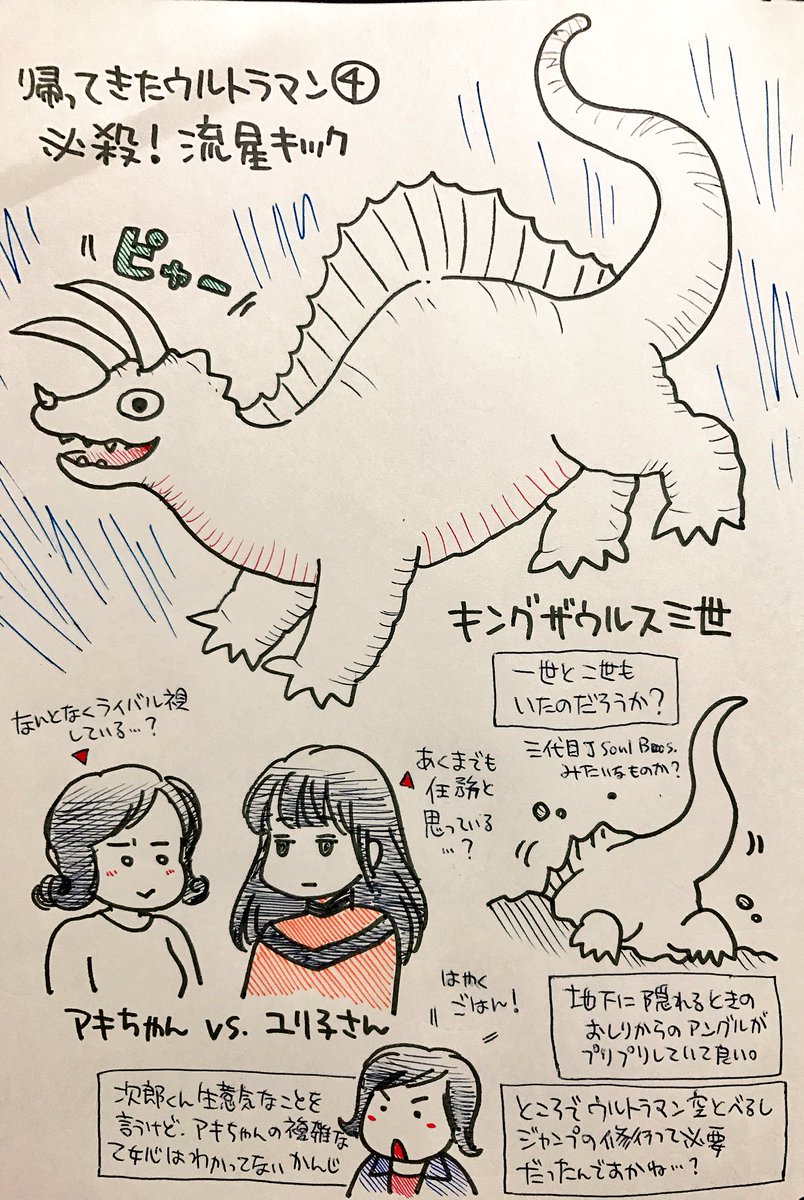 帰ってきたウルトラマン④
必殺!流星キック
ピャー
キングザウルス三世
一世と二世も
いたのだろうか?
三代目J Soul Bros.
みたいなものか?
なんとなくライバル視
している…?
あくまでも
任務と
思っている
…?
アキちゃん vs. ユリ子さん
地下に隠れるときの
おしりからのアングルが
プリプリしていて良い。
はやく
ごはん!
次郎くん生意気なことを
言うけど、アキちゃんの複雑な
乙女心はわかってないかんじ
ところでウルトラマン空とべるし
ジャンプの修行って必要
だったんですかね…?